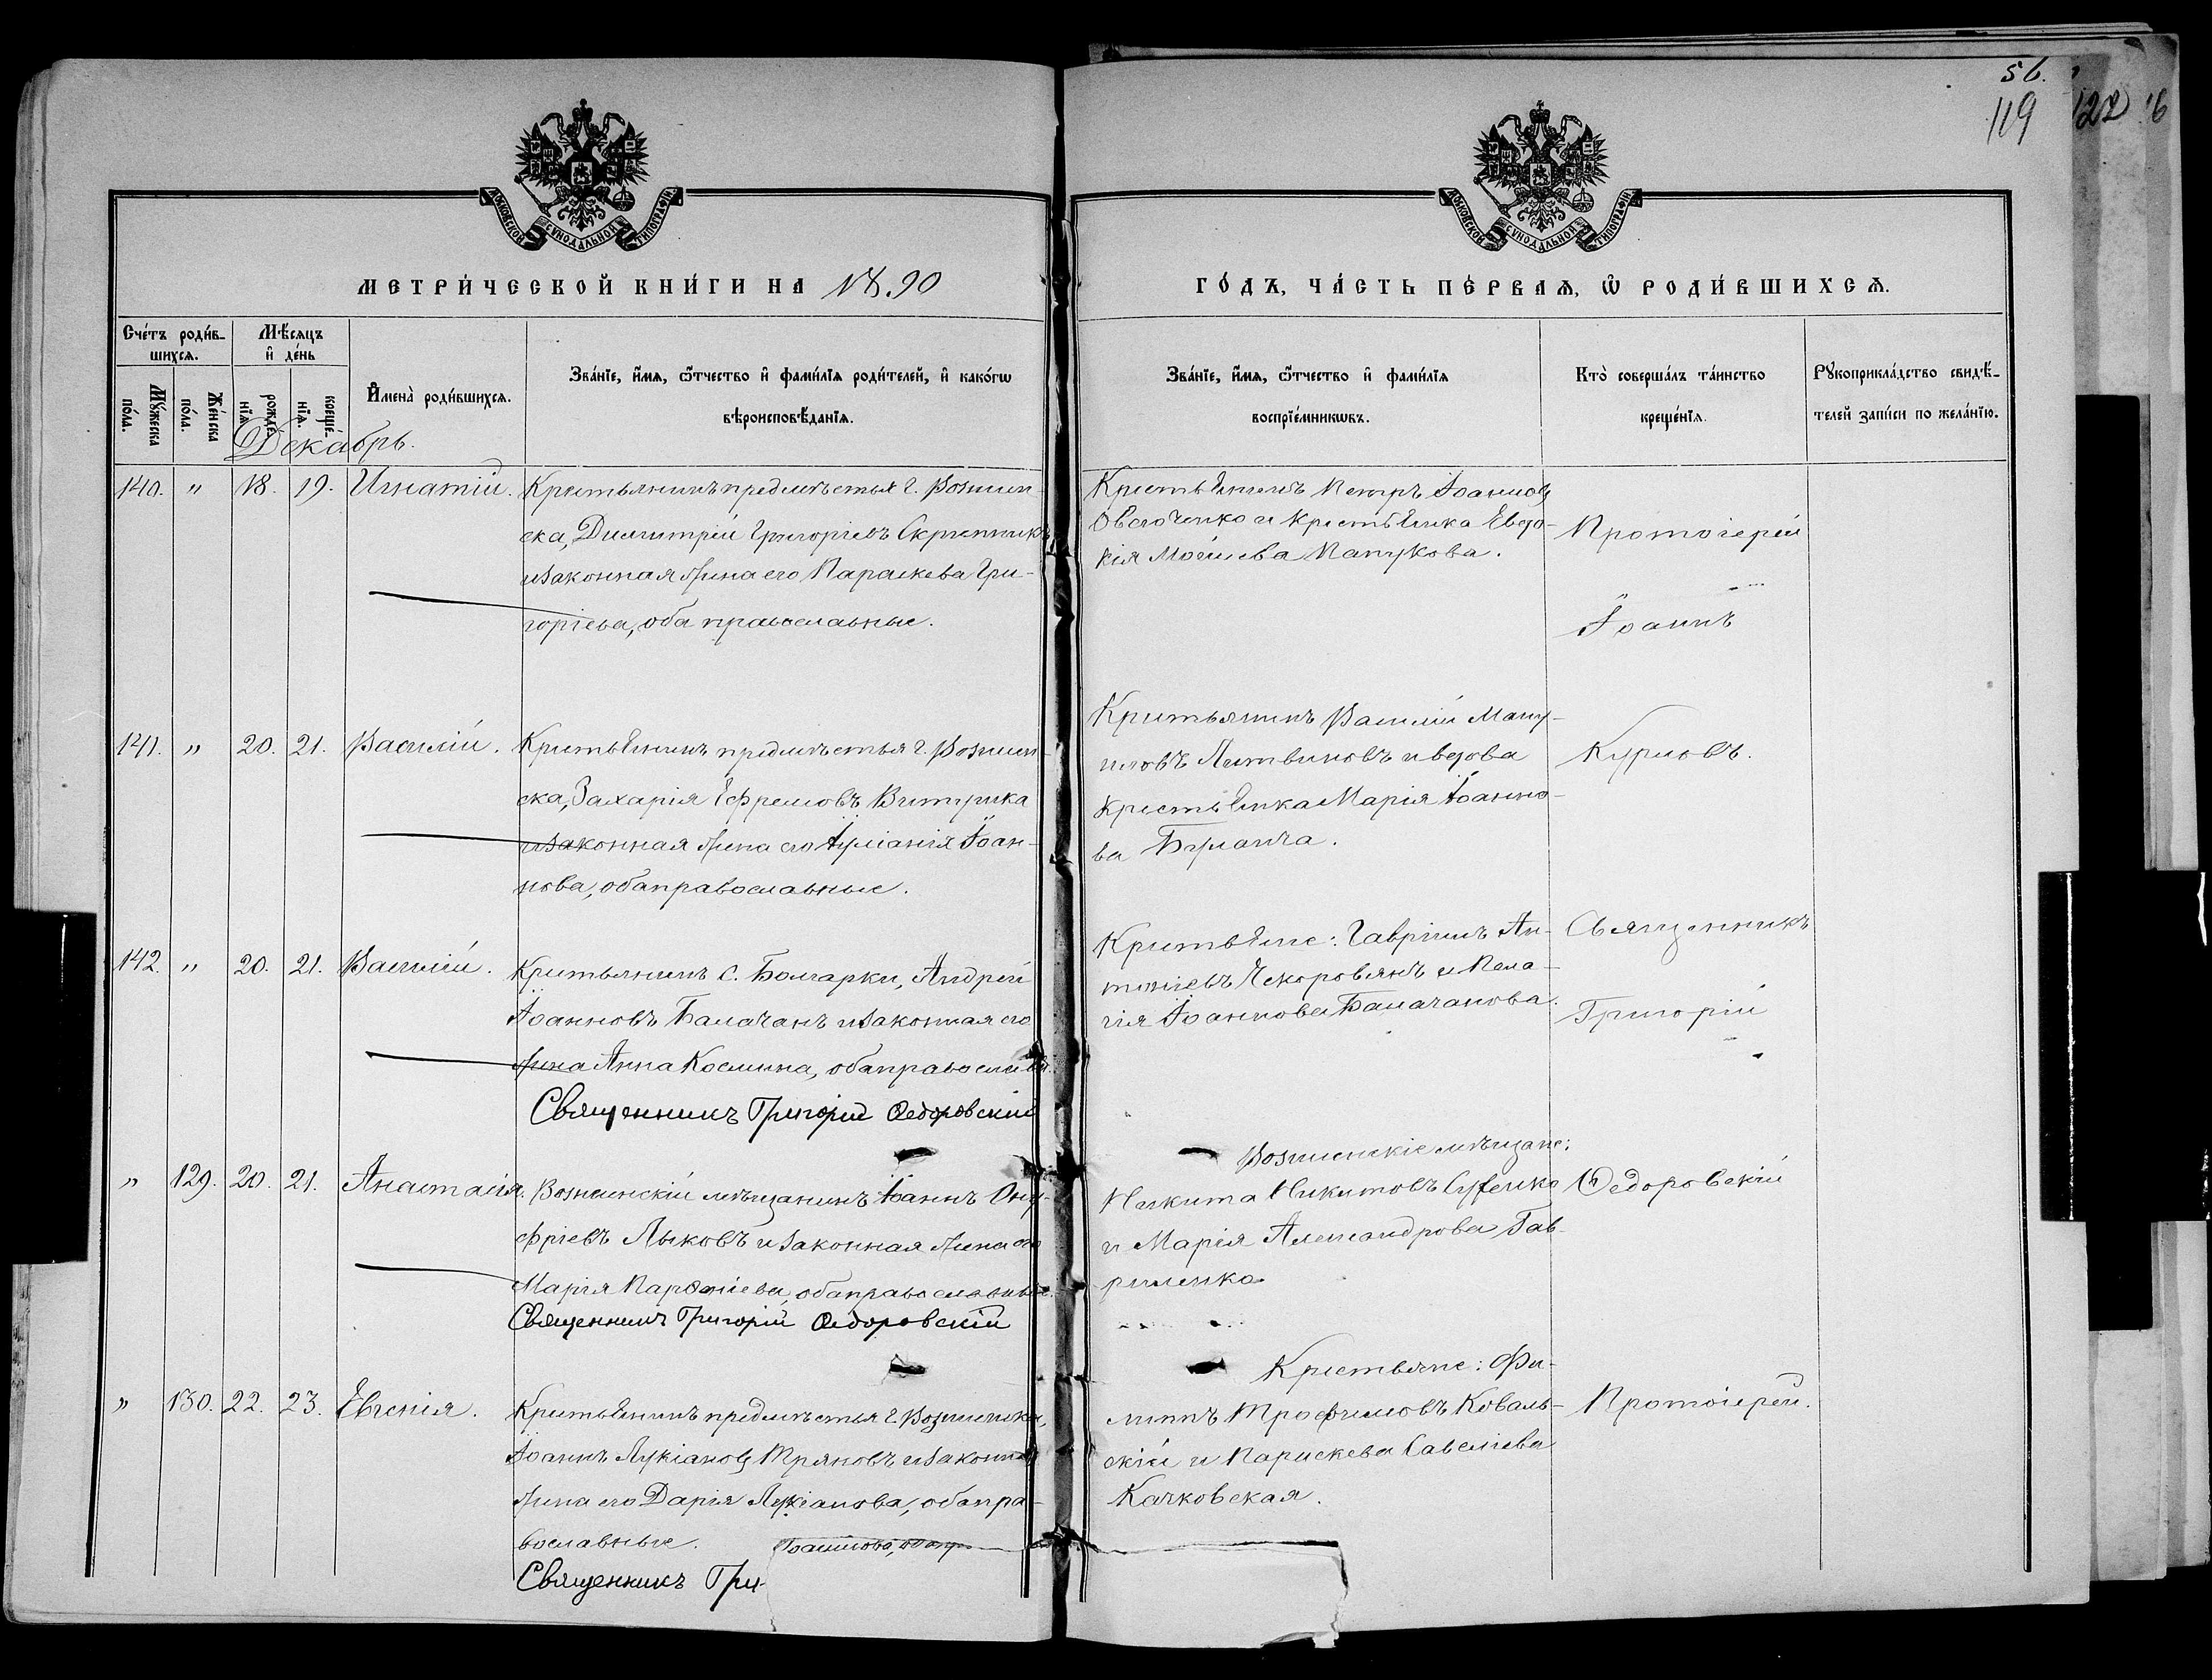 56.
119
122
МОСКОВСКОЙ СѴНОДАЛЬНОЙ ТИПОГРАФІИ.
МОСКОВСКОЙ СѴНОДАЛЬНОЙ ТИПОГРАФІИ.
МЕТРИ́ЧЕСКОЙ КНИ́ГИ НА 1890
ГО́ДЪ, ЧА́СТЬ ПЕ́РВАѦ, Ѿ РОДИ́ВШИХСѦ.
Сче́тъ роди́в-
шихсѧ.
Мꙋ́жеска по́ла.
Же́нска по́ла.
Мѣ́сѧцъ
и҆ де́нь
рожде́нїѧ.
креще́нїѧ.
И҆мена̀ роди́вшихсѧ.
Зва́нїе, и҆́мѧ, ѻ҆́тчество и҆ фами́лїѧ роди́телей, и҆ како́гѡ
вѣроисповѣ́данїѧ.
Зва́нїе, и҆́мѧ, ѻ҆́тчество и҆ фами́лїѧ
воспрїе́мникѡвъ.
Кто̀ соверша́лъ та́инство
креще́нїѧ.
Рꙋкоприкла́дство свидѣ́-
телей за́писи по жела́нїю.
Декабрь.
140. " 18. 19. Игнатій.
Крестьянинъ предмѣстья г. Вознесен-
ска, Димитрій Григоріевъ Скрипникъ
и законная жена его Параскева Гри-
горіева, оба православные.
Крестьянинъ Петръ Іоанновъ
и крестьянка Евдо-
кія
Протоіерей
Іоаннъ
141. " 20. 21. Василій.
Крестьянинъ предмѣстья г. Вознесен-
ска, Захарія Ефремовъ
и законная жена его Іуліанія Іоан-
нова, оба православные.
Крестьянинъ ВасилійМану-
иловъ Литвиновъ и вдова
крестьянка Марія Іоанно-
ва
Курловъ.
142. " 20. 21. Василій.
Крестьянинъ с. Болгарки, Андрей
Іоанновъ Балачанъ и законная его
жена Анна Космина, оба православн.
Священникъ Григорій Ѳедоровскій
Крестьяне: Гавріилъ Ан-
тоніевъ и Пела-
гія Іоаннова Балачанова.
Священникъ
Григорій
" 129. 20. 21. Анастасія.
Вознесенскій мѣщанинъ Іоаннъ Ону-
фріевъ Лыковъ и законная жена его
Марія Парѳеніева, оба православные.
Священникъ Григорій Ѳедоровскій
Вознесенскіе мѣщане:
Никита Никитовъ
и Марія Александрова Гав-
риленко
Ѳедоровскій
" 130. 22. 23. Евгенія.
Крестьянинъ предмѣстья г. Вознесенска,
Іоаннъ Лукіановъ Трояновъ и законная
жена его Дарія Лукіанова, оба пра-
вославные.
Священникъ Гри-
Крестьяне: Фи-
липпъ Трофимовъ Коваль-
скій и Параскева Савеліева
Качковская.
Протоіерей.